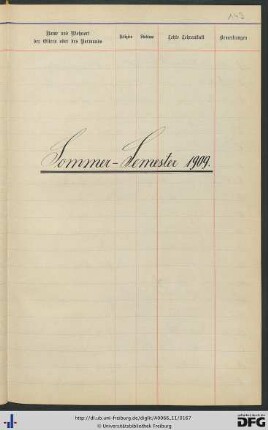 Name und Wohnort
der Eltern oder des Vormunds
Religion
Studium
Letzte Lehranstalt
Bemerkungen
Sommer-Semester 1909.
http://dl.ub.uni-freiburg.de/diglit/A0066_II/0167
© Universitätsbibliothek Freiburg
DFG